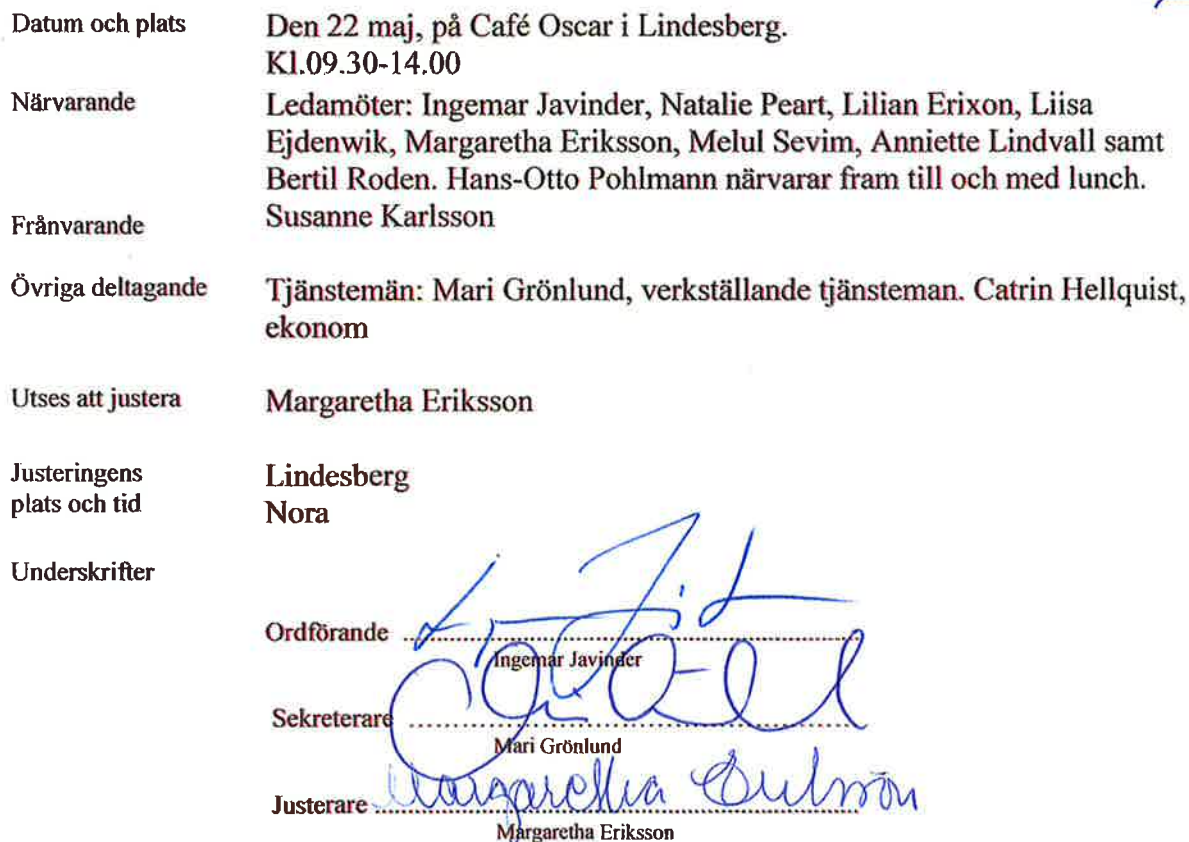 Datum och plats Den 22 maj, på Café Oscar i Lindesberg.
Kl.09.30-14.00
Närvarande Ledamöter: Ingemar Javinder, Natalie Peart, Lilian Erixon, Liisa
Ejdenwik, Margaretha Eriksson, Melul Sevim, Anniette Lindvall samt
Bertil Roden. Hans-Otto Pohlmann närvarar fram till och med lunch.
Frånvarande Susanne Karlsson
Övriga deltagande Tjänstemän: Mari Grönlund, verkställande tjänsteman. Catrin Hellquist,
ekonom
Utses att justera Margaretha Eriksson
Justeringens Lindesberg
plats och tid Nora
Underskrifter
Ordförande
Ingemar Javinder
Sekreterare
Mari Grönlund
Justerare Margaretha Eriksson
Margaretha Eriksson